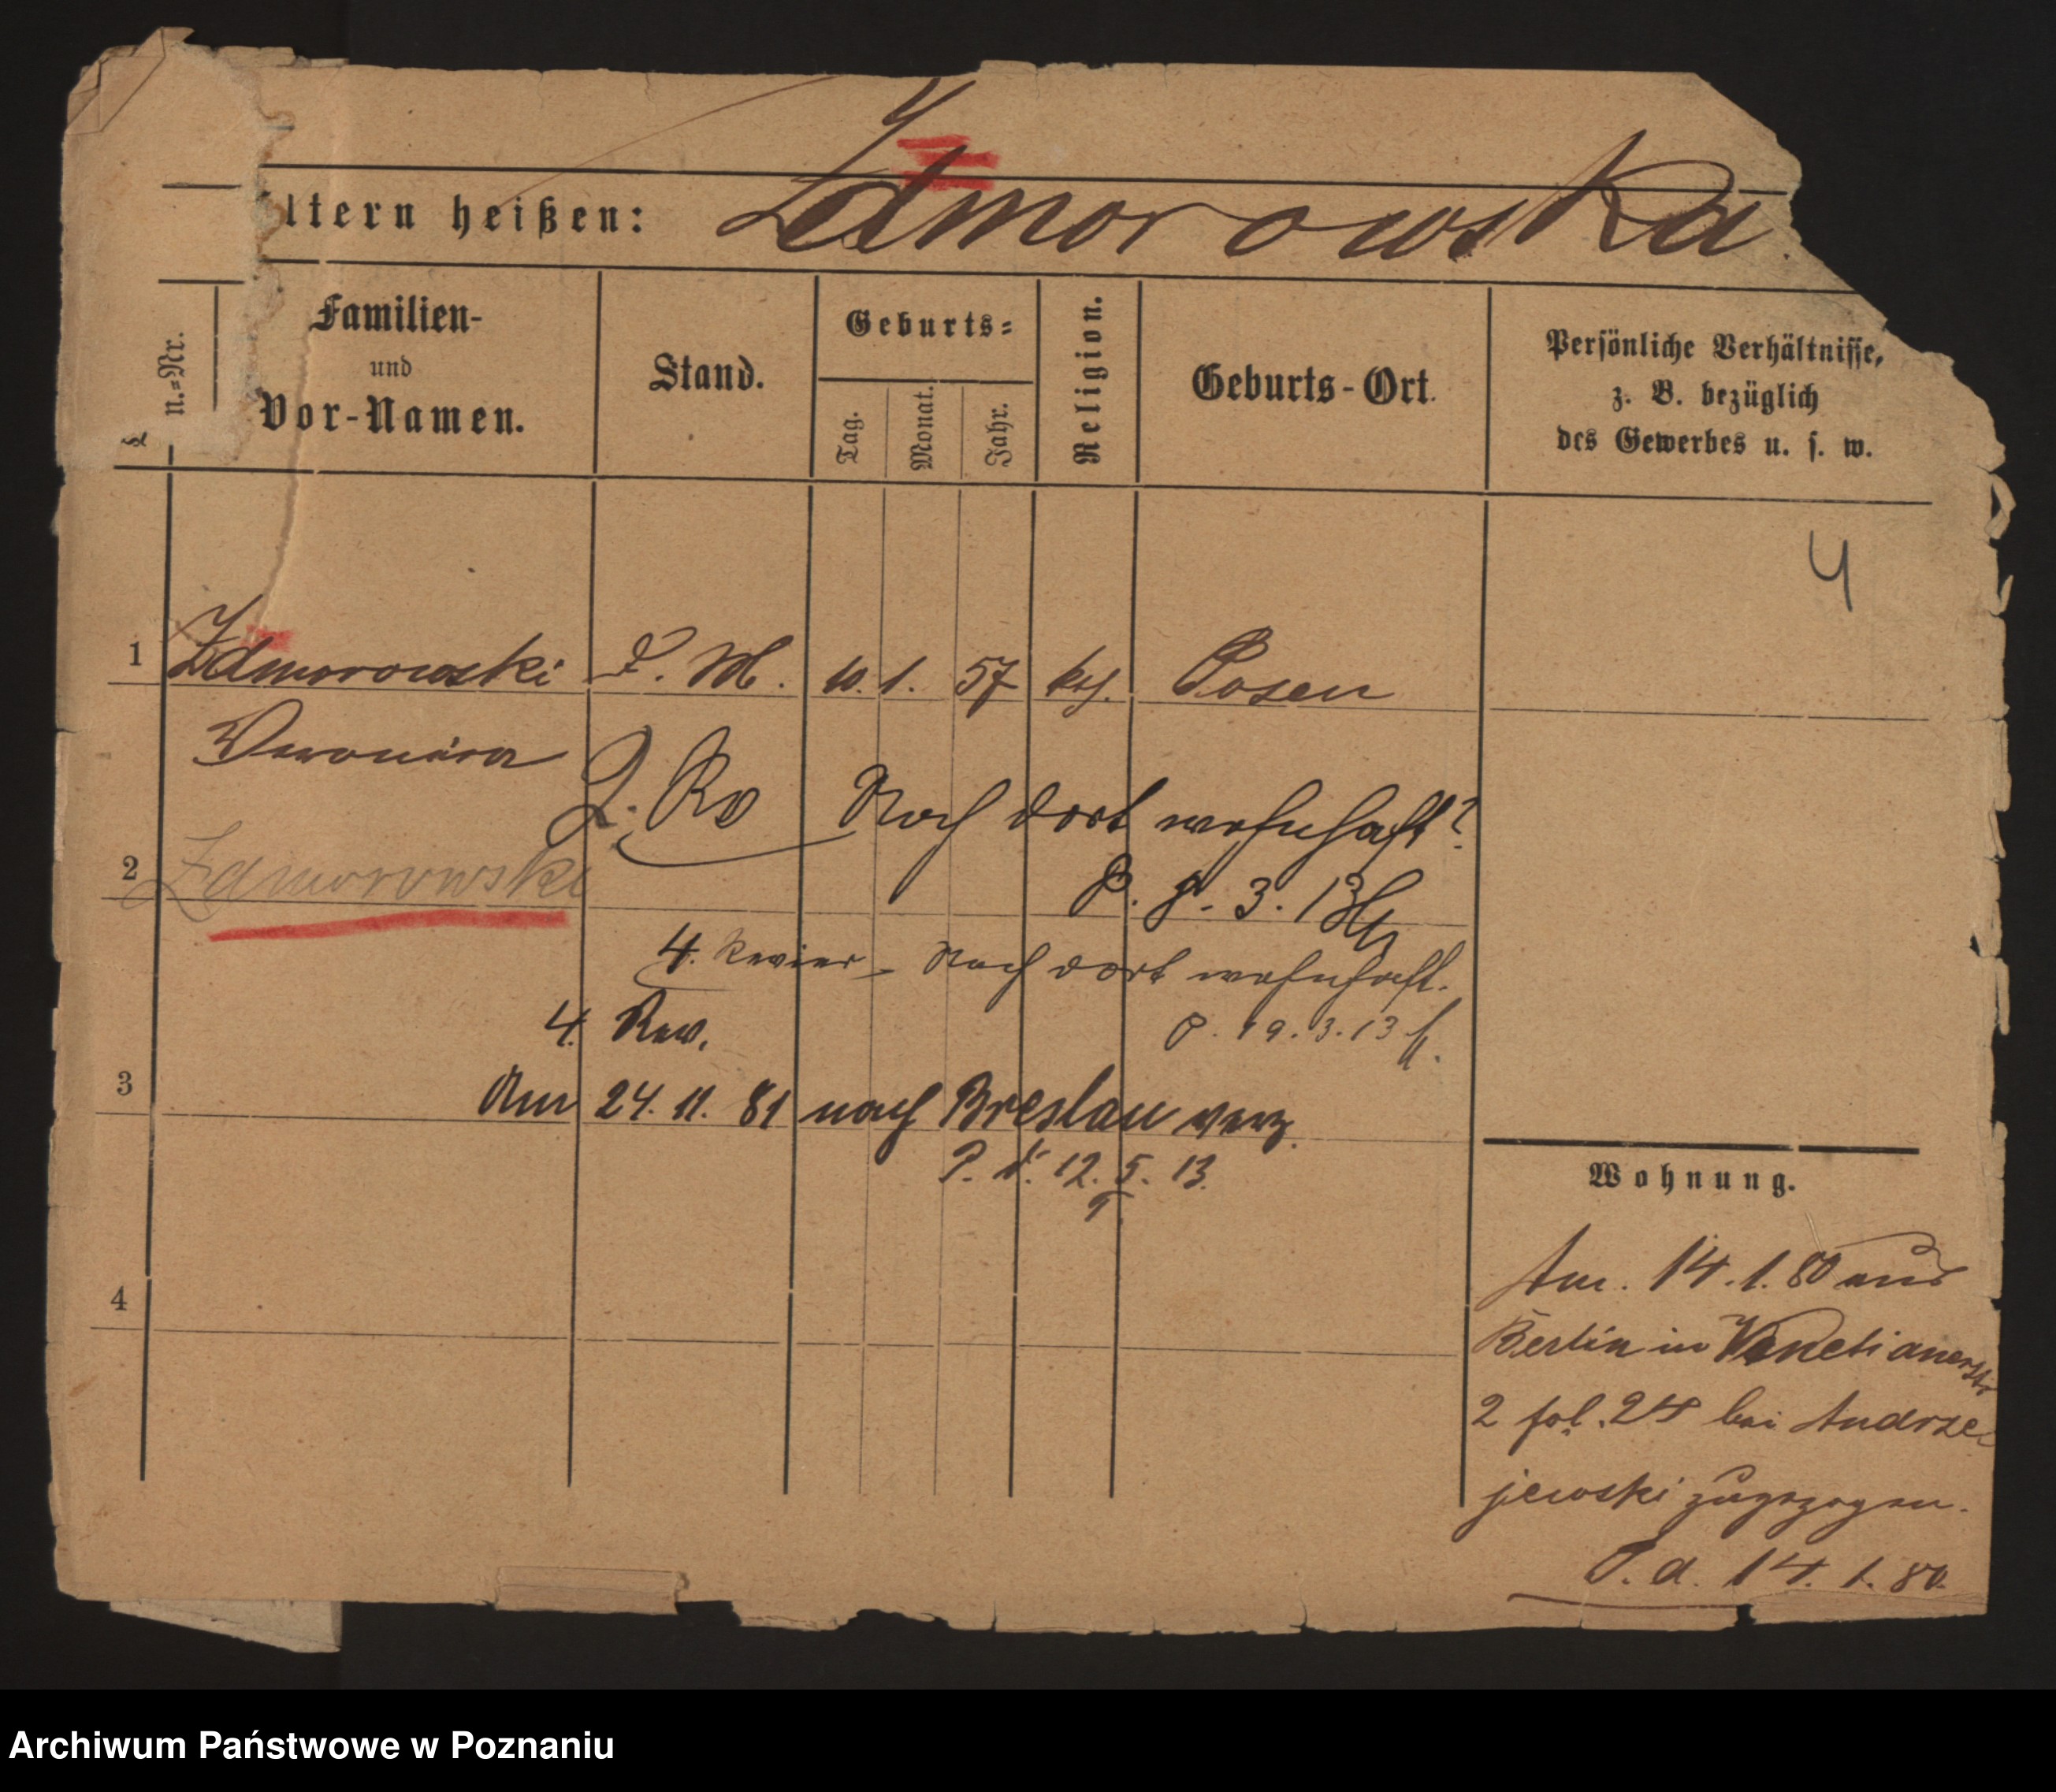 ltern heißen: Zdmorowska
n.=Nr.
Familien-
und
Vor-Namen.
Stand.
Geburts=
Tag.
Monat.
Jahr.
Religion.
Geburts-Ort.
Persönliche Verhältnisse,
z. B. bezüglich
des Gewerbes u. s. w.
4
1 Zdmorowski D. M. 10. 1. 57 kth. Posen
Veronica
2. Rv Noch dort wohnhaft?
2 Zdmorowski
P. 8. 3. 13
4. Revier Noch dort wohnhaft.
4. Rev. P. 19. 3. 13
3 Am 24. 11. 81 nach Breslau verz.
P. d. 12. 5. 13.
4
Wohnung.
Am. 14. 1. 80 aus
Berlin in Venetianerstr
2 fol. 24 bei Andrze-
jewski zugezogen.
P. d. 14. 1. 80.
Archiwum Państwowe w Poznaniu